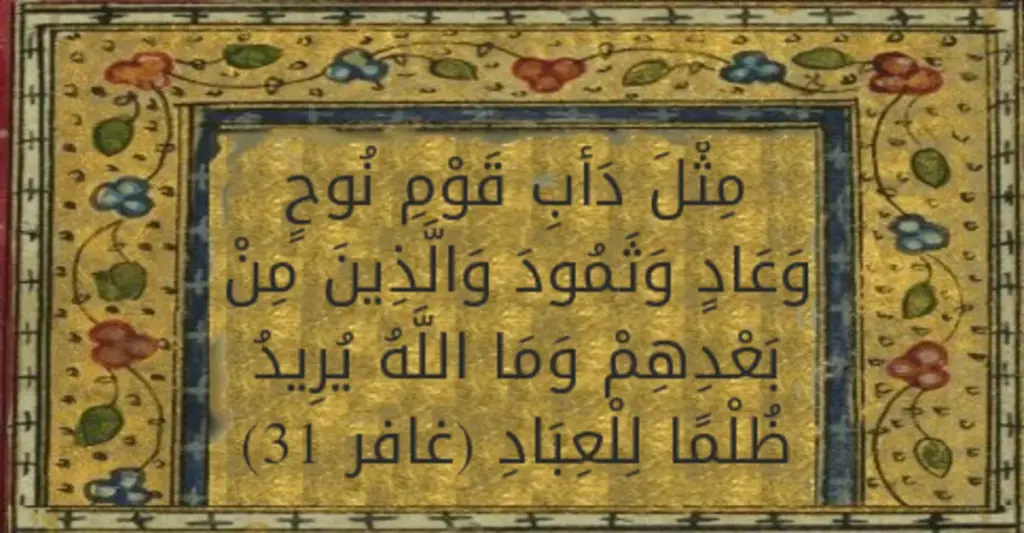 مِثْلَ دَأبِ قَوْمِ نُوحٍ
وَعَادٍ وَثَمُودَ وَالَّذِينَ مِنْ
بَعْدِهِمْ وَمَا اللَّهُ يُرِيدُ
ظُلْمًا لِلْعِبَادِ (غافر 31)